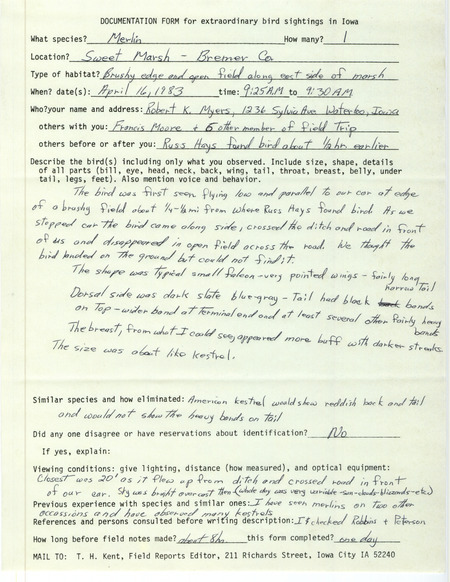 DOCUMENTATION FORM for extraordinary bird sightings in Iowa
What species? Merlin How many? 1
Location? Sweet Marsh - Bremer Co.
Type of habitat? Brushy edge and open field along east side of marsh
When? date(s): April 16, 1983 time: 9:25 A.M. to 9:30 A.M.
Who? your name and address: Robert K. Myers, 1236 Sylvia Ave. Waterloo, Iowa
others with you: Francis Moore + 6 other member of Field Trip
others before or after you: Russ Hays found bird about ½ hr earlier
Describe the bird(s) including only what you observed. Include size, shape, details
of all parts (bill, eye, head, neck, back, wing, tail, throat, breast, belly, under
tail, legs, feet). Also mention voice and behavior.
The bird was first seen flying low and parallel to our car at edge
of a brushy field about ¼-½ mi from where Russ Hays found bird. As we
stopped car the bird came along side, crossed the ditch and road in front
of us and disappeared in open field across the road. We thought the
bird landed on the ground but could not find it.
The shape was typical small falcon - very pointed wings - fairly long
narrow tail
Dorsal side was dark slate blue-gray - Tail had black bands
on Top - wider band at terminal end and at least several other fairly heavy
bands
The breast, from what I could see, appeared more buff with darker streaks.
The size was about like kestrel.
Similar species and how eliminated: American kestrel would show reddish back and tail
and would not show the heavy bands on tail
Did any one disagree or have reservations about identification? No
If yes, explain:
Viewing conditions: give lighting, distance (how measured), and optical equipment:
Closest was 20' as it flew up from ditch and crossed road in front
of our car. Sky was bright overcast then (whole day was very variable - sun - clouds - blizzards - etc.)
Previous experience with species and similar ones: I have seen merlins on two other
occassions and have observed many kestrels
References and persons consulted before writing description: I checked Robbins + Peterson
How long before field notes made? about 8 hr. this form completed? one day
MAIL TO: T. H. Kent, Field Reports Editor, 211 Richards Street, Iowa City IA 52240